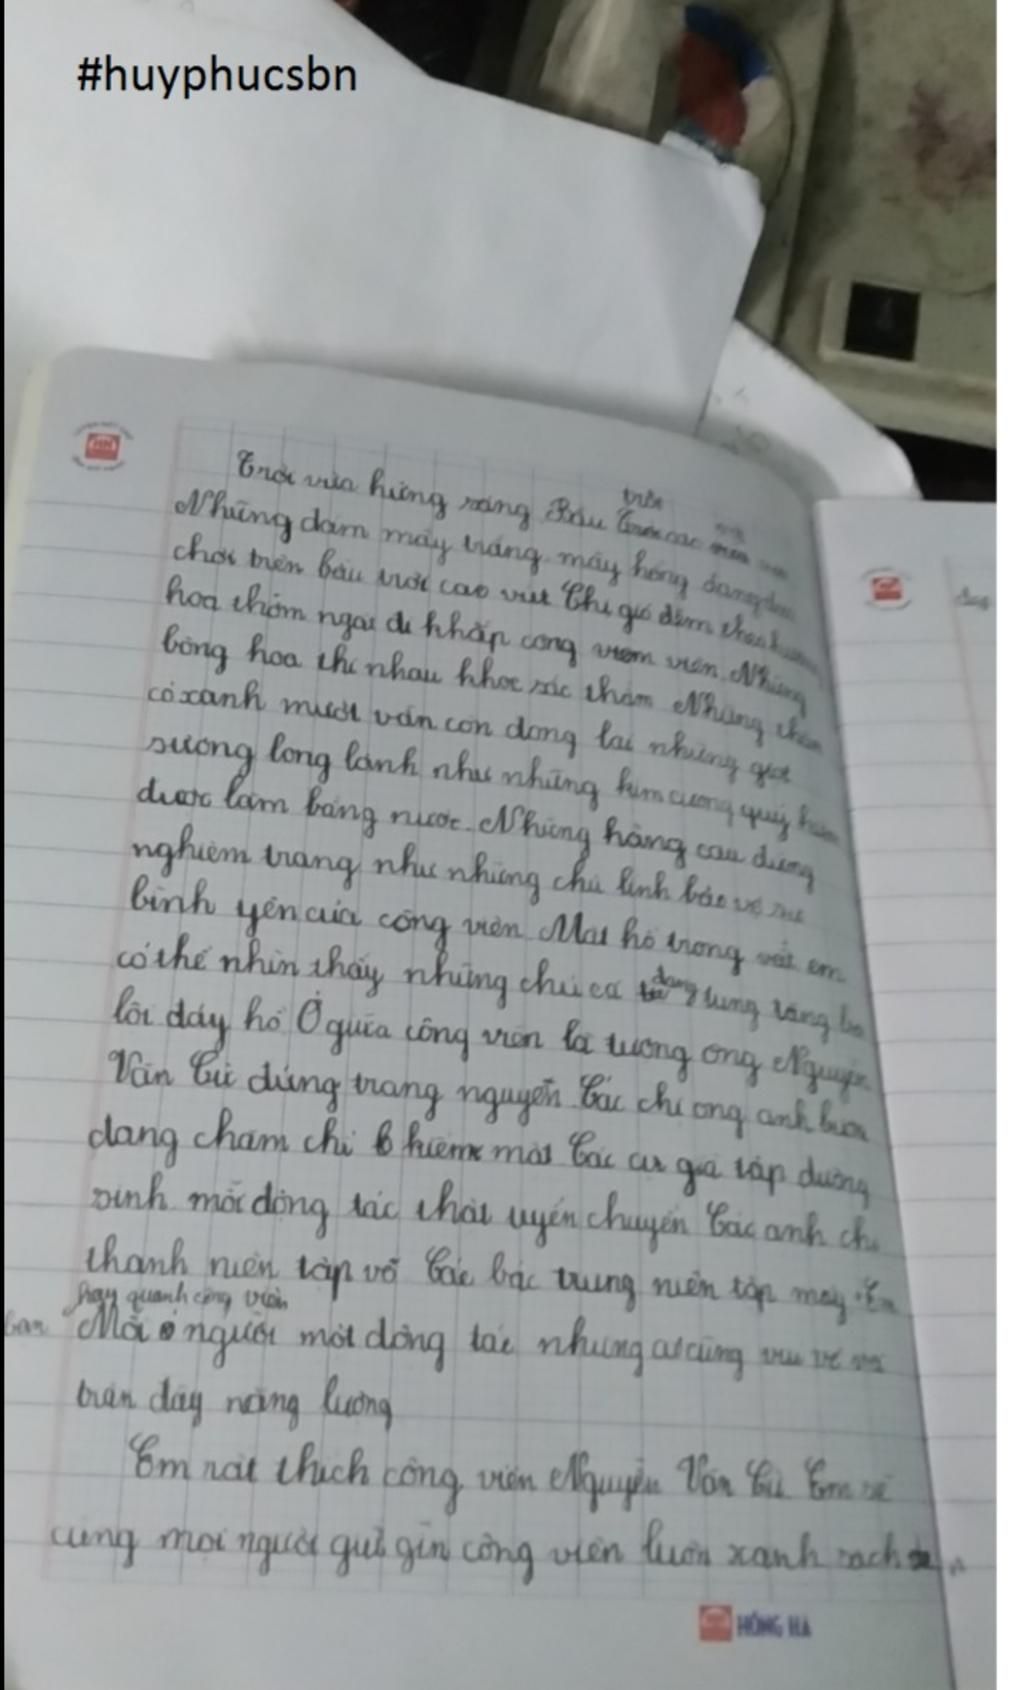 #huyphucsbn
Trời vừa hửng sáng Bầu trên các
Những đám mây trắng mây hồng đang
chơi trên bầu trời cao vút Chị gió đêm
hoa thơm ngát đi khắp công viên Những
bông hoa thi nhau khoe sắc thắm Những
cỏ xanh mướt vẫn còn đọng lại những giọt
sương long lanh như những kim cương quý
được làm bằng nước. Những hàng cau đứng
nghiêm trang như những chú lính bảo vệ sự
bình yên của công viên Mặt hồ trong vắt em
có thể nhìn thấy những chú cá đang tung tăng
lội đáy hồ Ở giữa công viên là tượng ông Nguyễn
Văn Cừ đứng trang nguyên Các chị ong anh bướm
đang chăm chỉ kiếm mật Các cụ già tập dưỡng
sinh mỗi động tác thật uyển chuyển Các anh chị
thanh niên tập võ Các bác trung niên tập máy
hay quanh công viên
Mỗi người một động tác nhưng ai cũng vui vẻ và
tràn đầy năng lượng
Em rất thích công viên Nguyễn Văn Cừ Em sẽ
cùng mọi người giữ gìn công viên luôn xanh sạch
HỒNG HÀ